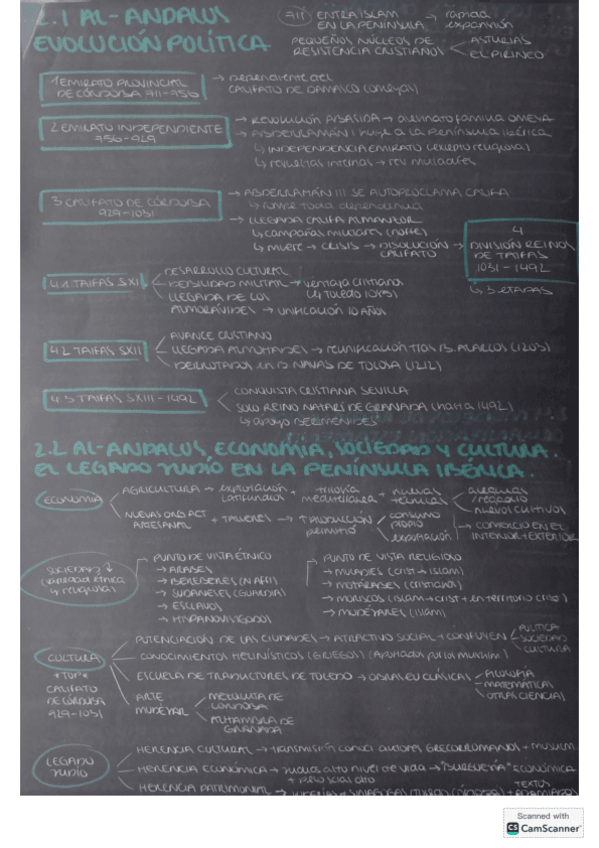 2.1 AL-ANDALUS
EVOLUCIÓN POLÍTICA
711 ENTRA ISLAM EN LA PENÍNSULA → rápida expansión
PEQUEÑOS NÚCLEOS DE RESISTENCIA CRISTIANOS
ASTURIAS
EL PIRINEO
1 EMIRATO PROVINCIAL
DE CÓRDOBA 711-756
→ Dependiente del
CALIFATO DE DAMASCO (omeya)
2 EMIRATO INDEPENDIENTE
756-929
→ REVOLUCIÓN ABASIDA → asesinato familia OMEYA
→ ABDERRAMÁN I huye a la Península Ibérica
↳ INDEPENDENCIA EMIRATO (excepto religiosa)
↳ revueltas internas → rev muladíes
3 CALIFATO DE CÓRDOBA
929-1031
→ ABDERRAMÁN III SE AUTOPROCLAMA CALIFA
↳ rompe toda dependencia
→ LLEGADA CALIFA ALMANZOR
↳ campañas militares (norte)
↳ muerte → CRISIS → DISOLUCIÓN CALIFATO →
4
DIVISIÓN REINOS
DE TAIFAS
1031-1492
↳ 3 ETAPAS
4.1 TAIFAS SXI
DESARROLLO CULTURAL
DEBILIDAD MILITAR → ventaja cristiana
(↳ Toledo 1085)
LLEGADA DE LOS
ALMORÁVIDES → UNIFICACIÓN 10 AÑOS
4.2 TAIFAS SXII
AVANCE CRISTIANO
LLEGADA ALMOHADES → reunificación tras B. ALARCOS (1203)
DERROTADOS en B NAVAS DE TOLOSA (1212)
4.3 TAIFAS SXIII-1492
CONQUISTA CRISTIANA SEVILLA
SOLO REINO NAZARÍ DE GRANADA (hasta 1492)
↳ apoyo BERIMENIDES
2.2 AL-ANDALUS, ECONOMÍA, SOCIEDAD Y CULTURA.
EL LEGADO JUDÍO EN LA PENÍNSULA IBÉRICA.
ECONOMÍA
AGRICULTURA → explotación latifundios + trilogía mediterránea + nuevas técnicas
acequias
regadío
nuevos cultivos
NUEVAS ORG ACT
ARTESANAL + TALLERES → ↑ PRODUCCIÓN
permitió
consumo propio
exportación → COMERCIO EN EL
INTERIOR + EXTERIOR
SOCIEDAD ↓
(variedad étnica
y religiosa)
PUNTO DE VISTA ÉTNICO
→ ARABES
→ BEREBERES (N AFRI)
→ SUDANELES (GUARDIA)
→ ESCLAVOS
→ HISPANOVISIGODOS
PUNTO DE VISTA RELIGIOSO
→ MULADÍES (CRIST → ISLAM)
→ MOZÁRABES (CRISTIANOS)
→ MORISCOS (ISLAM → CRIST + en territorio crist)
→ MUDÉJARES (ISLAM)
CULTURA
*TOP*
CALIFATO
DE CÓRDOBA
929-1031
POTENCIACIÓN DE LAS CIUDADES → ATRACTIVO SOCIAL + CONFLUYEN
POLÍTICA
SOCIEDAD
CULTURA
CONOCIMIENTOS HELENÍSTICOS (GRIEGOS) (Aportados por los muslim)
ESCUELA DE TRADUCTORES DE TOLEDO → OBRAS EU CLÁSICAS
FILOSOFÍA
MATEMÁTICAS
OTRAS CIENCIAS
ARTE
MUDÉJAR
MEZQUITA DE
CÓRDOBA
ALHAMBRA DE
GRANADA
LEGADO
JUDÍO
HERENCIA CULTURAL → TRANSMISIÓN conoci autores GRECORROMANOS + MUSULM
HERENCIA ECONÓMICA → judíos alto nivel de vida → "BURGUESÍA" ECONÓMICA
+ peso social alto
HERENCIA PATRIMONIAL →
TEXTOS
Scanned with
CS CamScanner